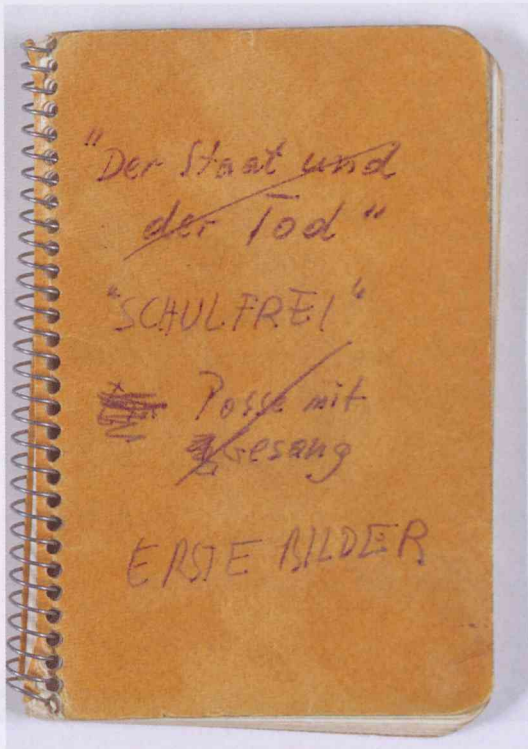 "Der Staat und
der Tod"
"SCHULFREI"
Posse mit
Gesang
ERSTE BILDER